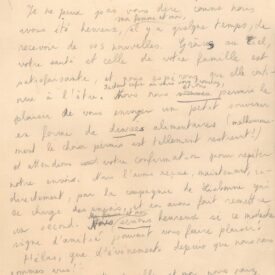 Je ne peux pas vous dire comme nous
ma femme et moi,
avons été heureux, il y a quelque temps, de
recevoir de vos nouvelles. Grâce au Ciel,
votre santé et celle de votre famille est
satisfaisante, et nous que elle
à l'être. Nous nous permis le
plaisir de vous envoyer un petit souvenir
en forme de denrées alimentaires (malheureuse-
ment le choix permis est tellement restreint!)
et attendions votre confirmation pour répéter
notre envoi. Nous l'avons reçue, maintenant, in-
directement, par la compagnie de qui
se charge des envois, et en avons fait remettre
un second. Nous serions heureux si ce modeste
signe d'amitié pouvait vous faire plaisir!
Hélas, que d'événements depuis que nous nous
sommes vus!
et nous nous